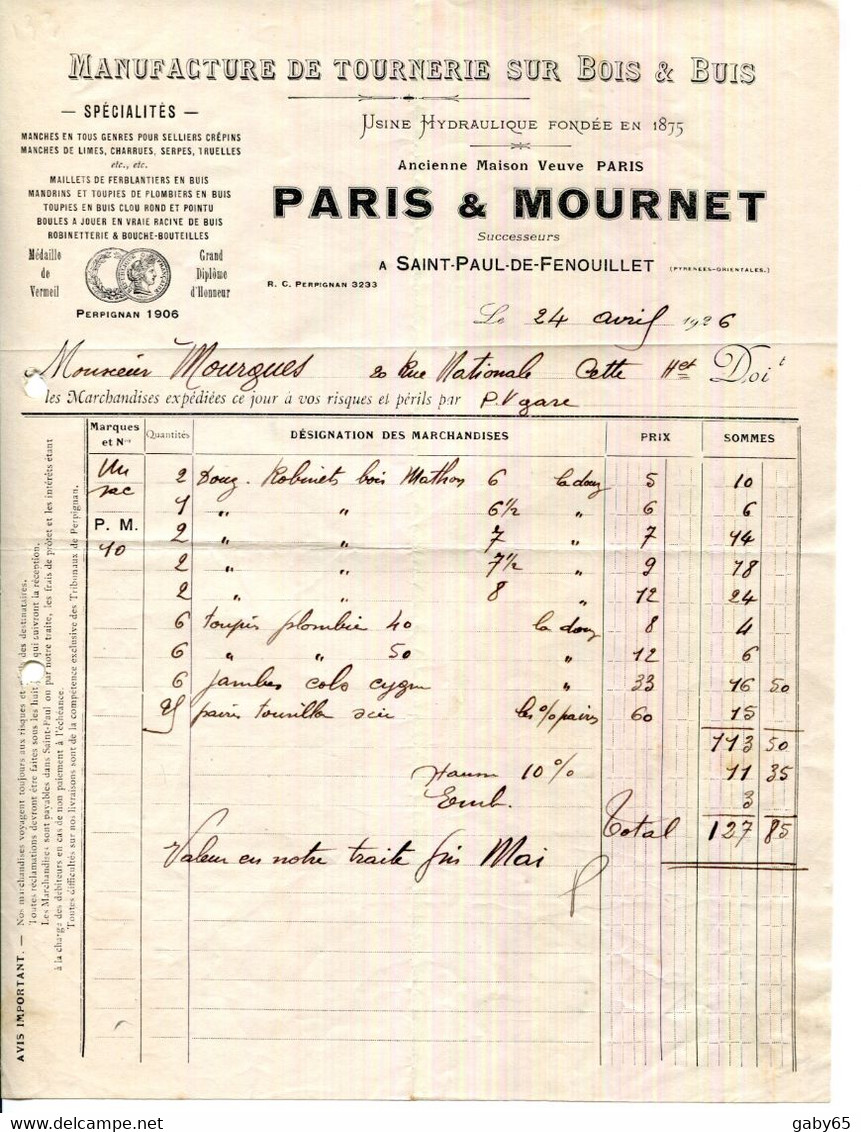 MANUFACTURE DE TOURNERIE SUR BOIS & BUIS
— SPÉCIALITÉS —
MANCHES EN TOUS GENRES POUR SELLIERS CRÉPINS
MANCHES DE LIMES, CHARRUES, SERPES, TRUELLES
etc., etc.
MAILLETS DE FERBLANTIERS EN BUIS
MANDRINS ET TOUPIES DE PLOMBIERS EN BUIS
TOUPIES EN BUIS CLOU ROND ET POINTU
BOULES A JOUER EN VRAIE RACINE DE BUIS
ROBINETTERIE & BOUCHE-BOUTEILLES
Médaille de Vermeil
Grand Diplôme d'Honneur
PERPIGNAN 1906
USINE HYDRAULIQUE FONDÉE EN 1875
Ancienne Maison Veuve PARIS
PARIS & MOURNET
Successeurs
A SAINT-PAUL-DE-FENOUILLET (PYRENEES-ORIENTALES.)
R. C. PERPIGNAN 3233
Le 24 avril 1926
Monsieur Mourgues 20 Rue Nationale Cette Het Doit
les Marchandises expédiées ce jour à vos risques et périls par P.V gare
Marques et Nos Quantités DÉSIGNATION DES MARCHANDISES PRIX SOMMES
Un sac 2 Douz. Robinets bois Mathon 6 la douz 5 10
1 " " 6 1/2 " 6 6
P. M. 2 " " 7 " 7 14
10 2 " " 7 1/2 " 9 18
2 " " 8 " 12 24
6 toupies plombier 40 la douz 8 4
6 " " 50 " 12 6
6 jambes cols cygne " 33 16 50
25 paires tourillon scie les % paires 60 15
113 50
Hausse 10% 11 35
Emb. 3
Total 127 85
Valeur en notre traite fin Mai
AVIS IMPORTANT. — Nos marchandises voyagent toujours aux risques et des destinataires.
Toutes réclamations devront être faites sous les huit qui suivront la réception.
Les Marchandises sont payables dans Saint-Paul ou par notre traite, les frais de protêt et les intérêts étant
à la charge des débiteurs en cas de non paiement à l'échéance.
Toutes difficultés sur nos livraisons sont de la compétence exclusive des Tribunaux de Perpignan.
gaby65